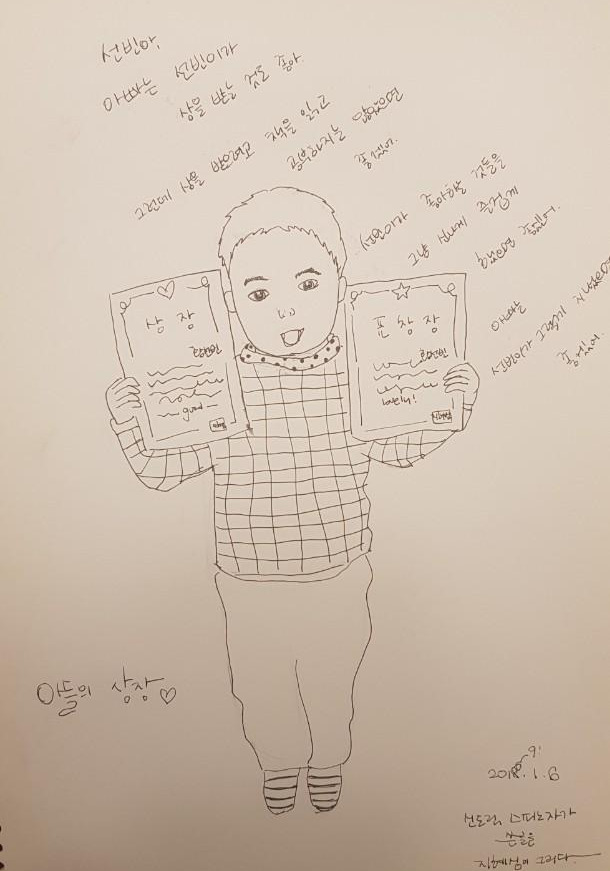 선빈아,
아빠는 선빈이가
상을 받는 것도 좋아.
그런데 상을 받으려고 책을 읽고
공부하지는 않았으면
좋겠어.
선빈이가 좋아하는 것들을
그냥 신나게 즐겁게
했으면 좋겠어.
아빠는
선빈이가 그렇게 지냈으면
좋겠어.
상장
good
표창장
lovely!
아들의 상장♡
2019.1.6
선도력, 스피노자가
쓴글을
지혜샘이 그리다.